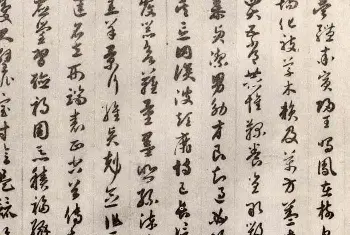 壹體率賓歸王鳴鳳在樹白
場化被草木賴及萬方蓋此
五常恭惟鞠養豈敢毀
慕貞潔男效才良知過必改
罔談彼短靡恃己長信
覆器欲難量墨悲絲染
羔羊景行維賢剋念作
建名立形端表正空谷傳
虛堂習聽禍因惡積福緣
尺璧非寶寸陰是競